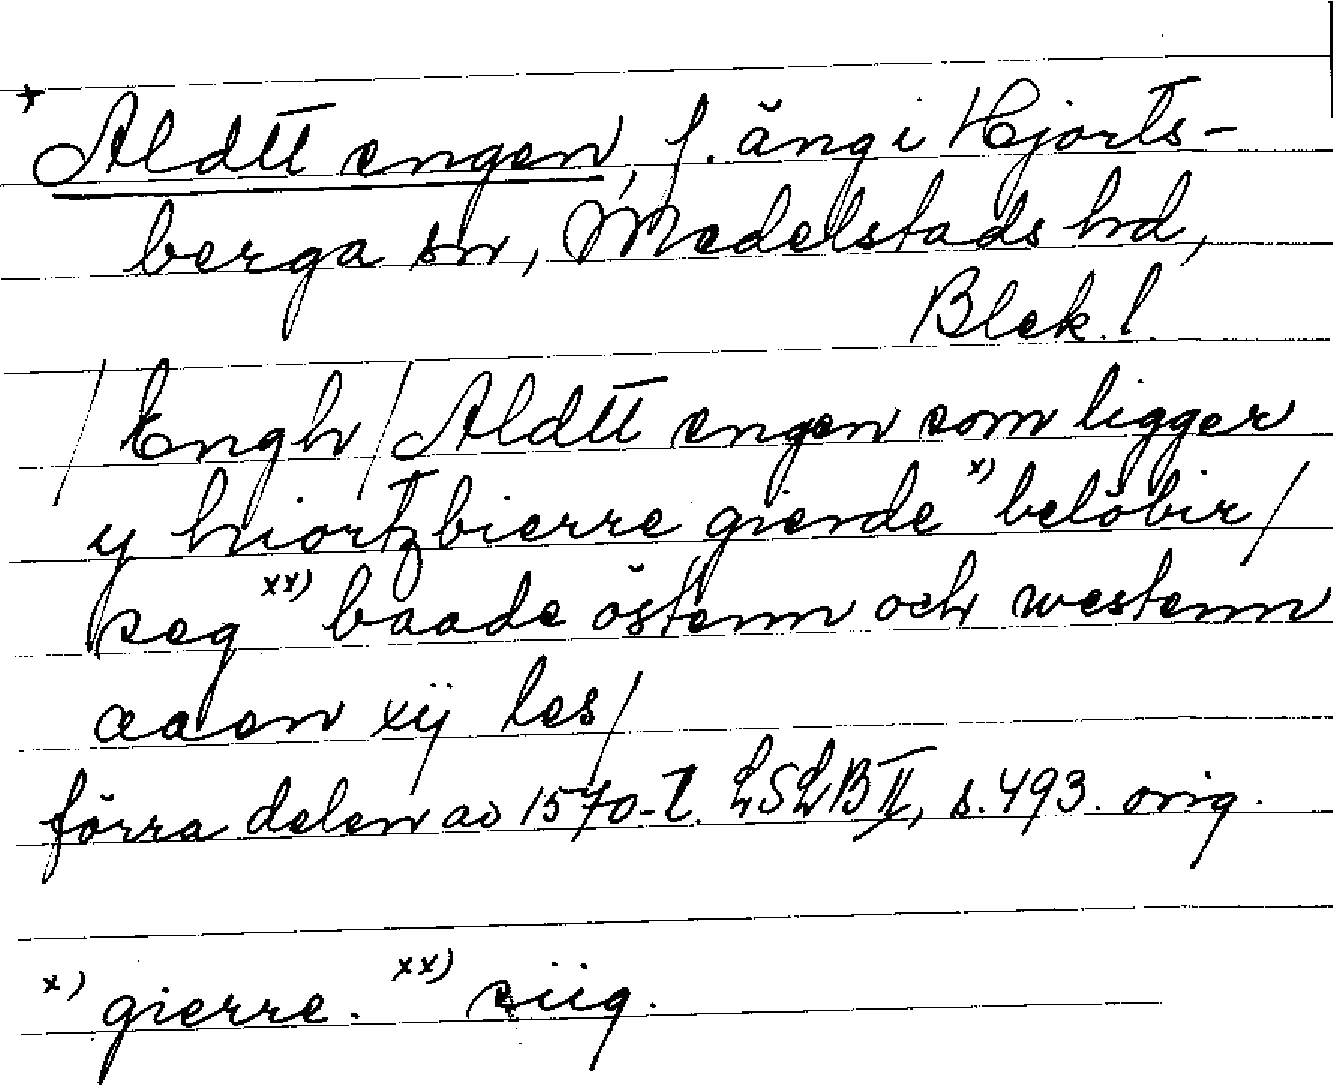 * Aldtt engen, f. äng i Hjorts-
berga sn, Medelstads hd,
Blek. l.
/Engh/ Aldtt engen som ligger
y hiortzbierre gierde x) belöbir/
seg xx) baade östenn och westenn
aaen xij les/
förra delen av 1570-t. LSLB II, s. 493. orig.
x) gierre. xx) siig.